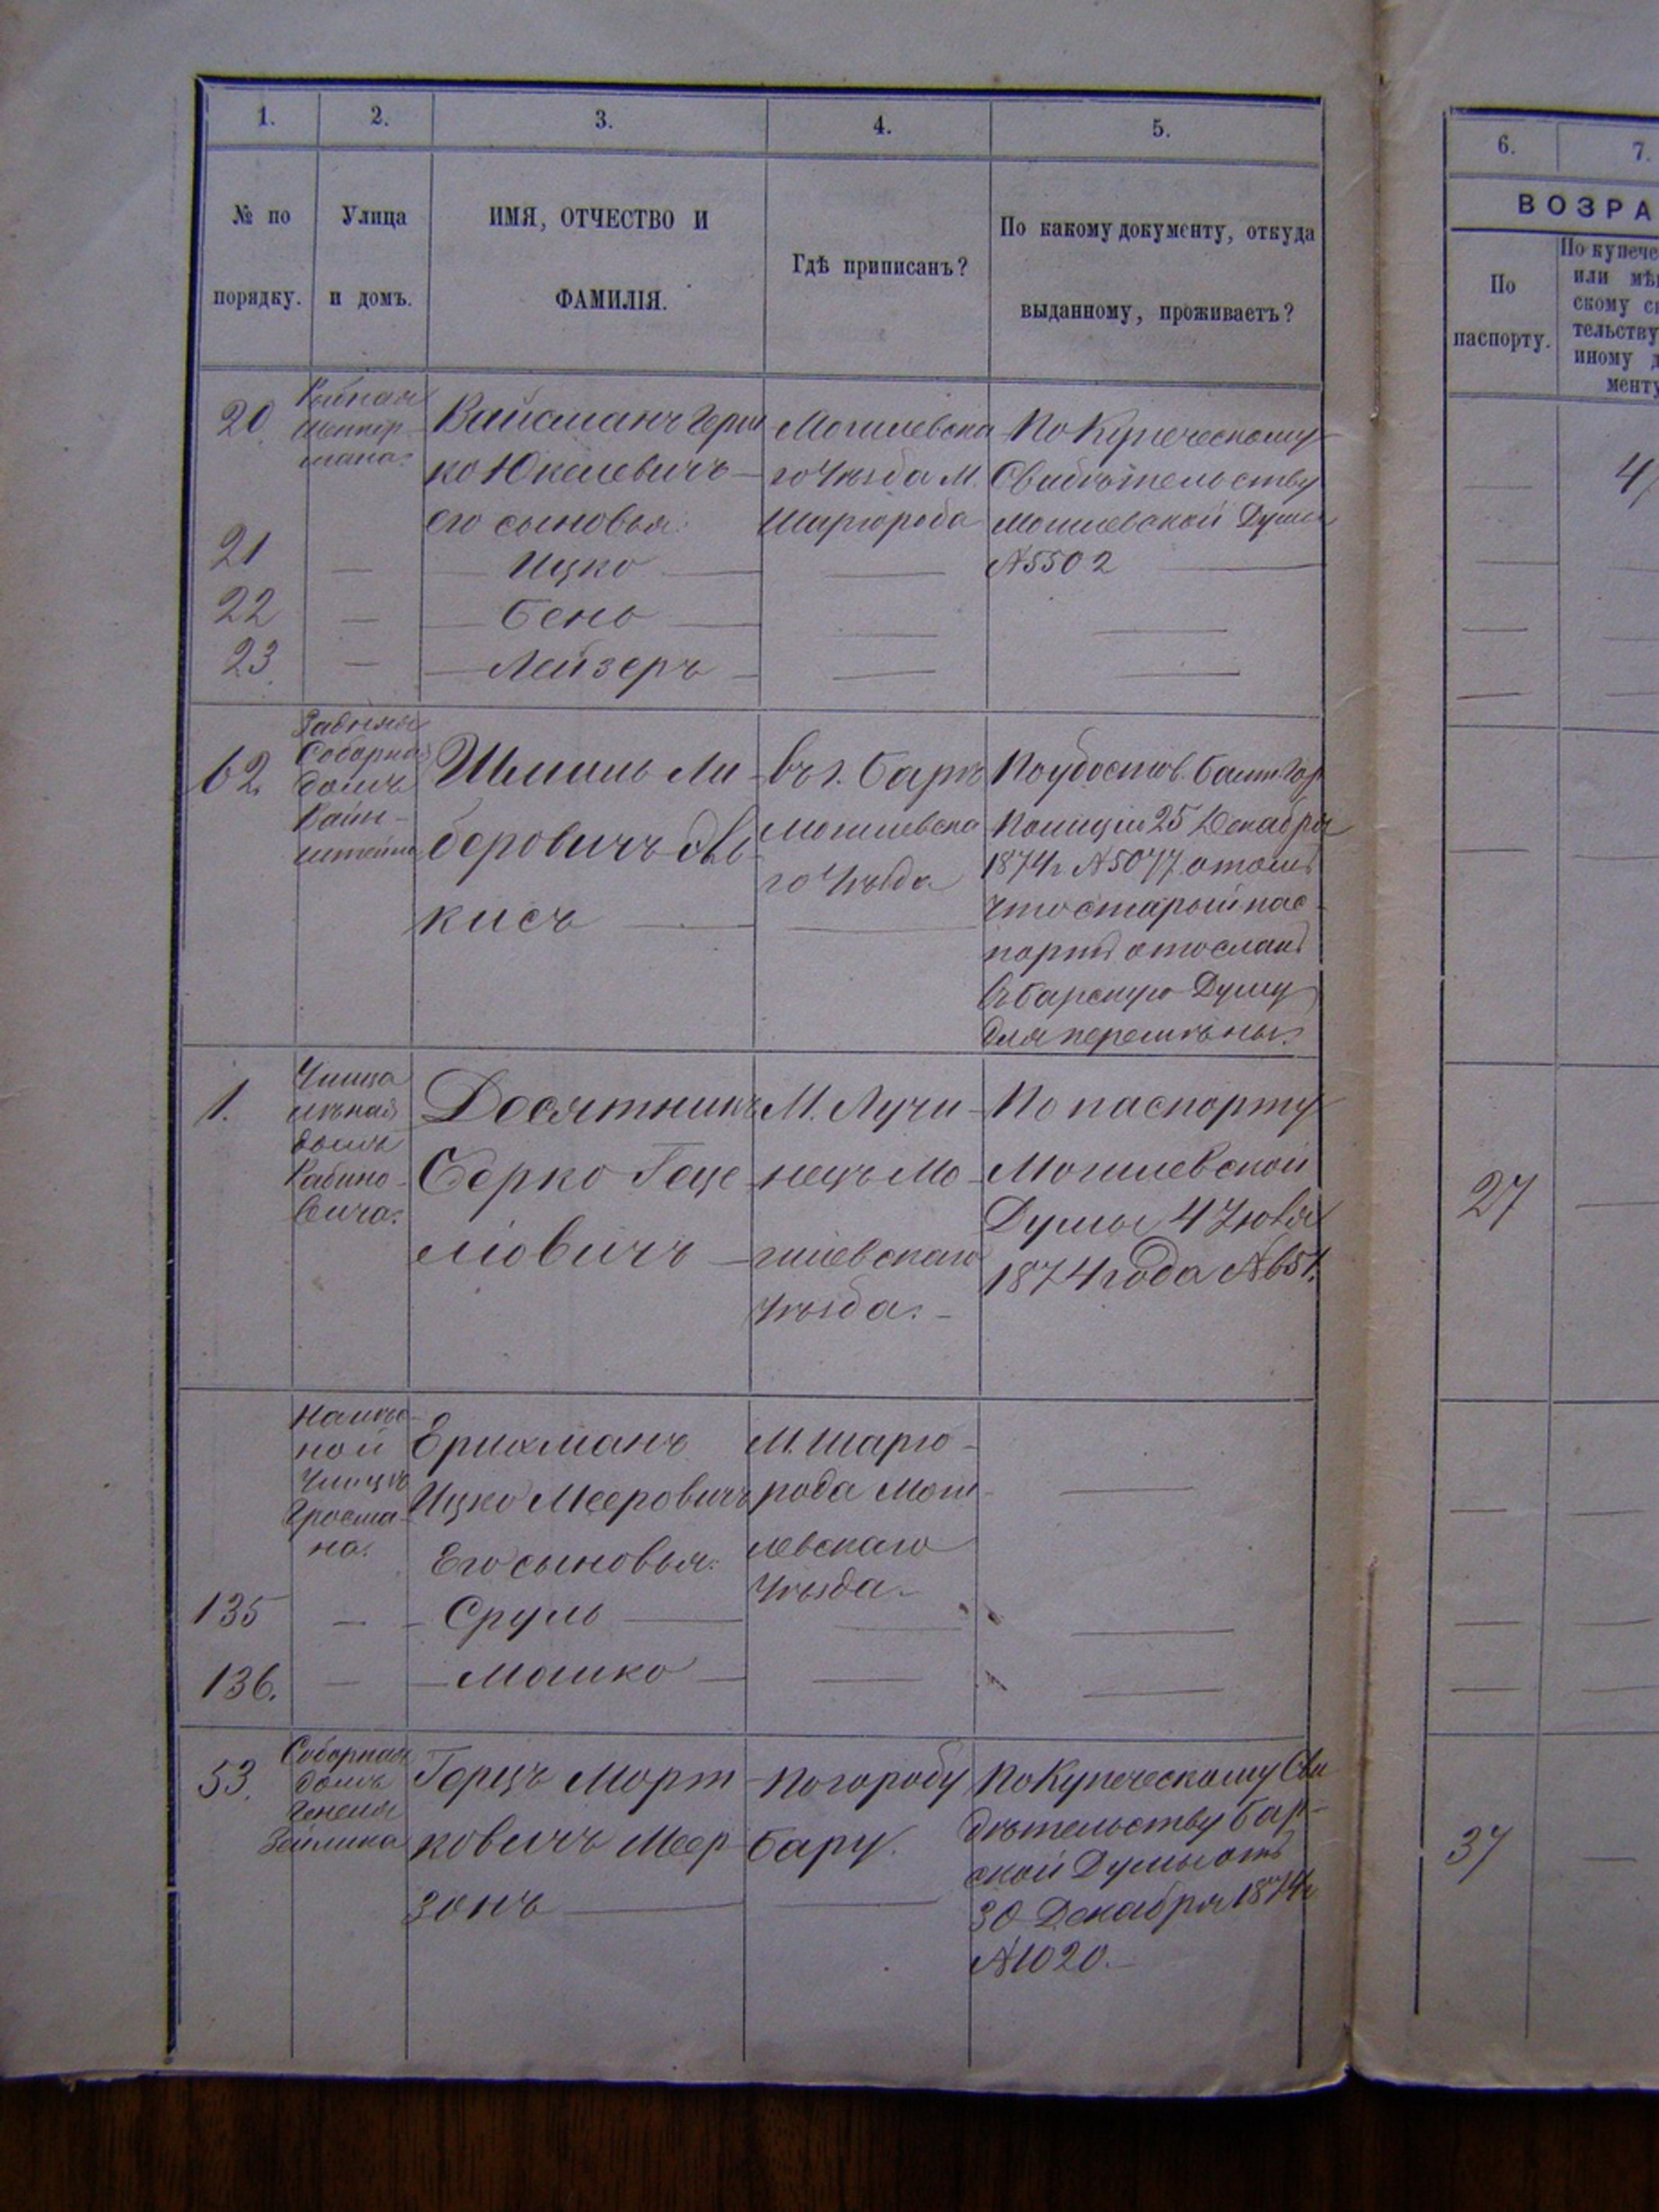 1.
2.
3.
4.
5.
№ по
порядку.
Улица
и домъ.
ИМЯ, ОТЧЕСТВО И
ФАМИЛІЯ.
Гдѣ приписанъ?
По какому документу, откуда
выданному, проживаетъ?
20.
Рыбная
Вайсманъ Герш
ко Юкелевичъ
его сыновья:
Могилевска
го Уѣзда М.
Шаргорода
По Купеческому
Свидѣтельству
Могилевской Думы
№5502
21
— Ицко —
22
— Бень —
23.
— Лейзеръ —
62.
Соборная
домъ
Вайн-
штейна
Шмиль Ли
беровичъ
кисъ
въ г. Барѣ
Могилевска
го Уѣзда
По удостов. Балт. Гор.
Полиціи 25 Декабря
1874г №5077 о томъ
что старый пас
портъ отосланъ
въ Барскую Думу
для перемѣны.
1.
Улица
домъ
Рабино-
вича.
Десятникъ
Берко Геце
ліовичъ
М. Лучи-
нецъ Мо-
гилевскаго
Уѣзда.
По паспорту
Могилевской
Думы 4 Іюля
1874 года №651.
ной
Улицѣ
Гросма-
на.
Ерихманъ
Ицко Мееровичъ
Его сыновья:
М. Шарго-
рода Моги-
левскаго
Уѣзда.
135
— Сруль —
136.
— Мошко —
53.
Соборная
домъ
Генеля
Зейлика
Герцъ Морт
ковичъ Меер
зонъ
По городу
Бару.
По Купеческому Сви
дѣтельству Бар-
ской Думы отъ
30 Декабря 1874г
№1020.
6.
7.
ВОЗРА
По
паспорту.
По купече
или мѣ
скому с
тельству
иному д
менту
4
27
37